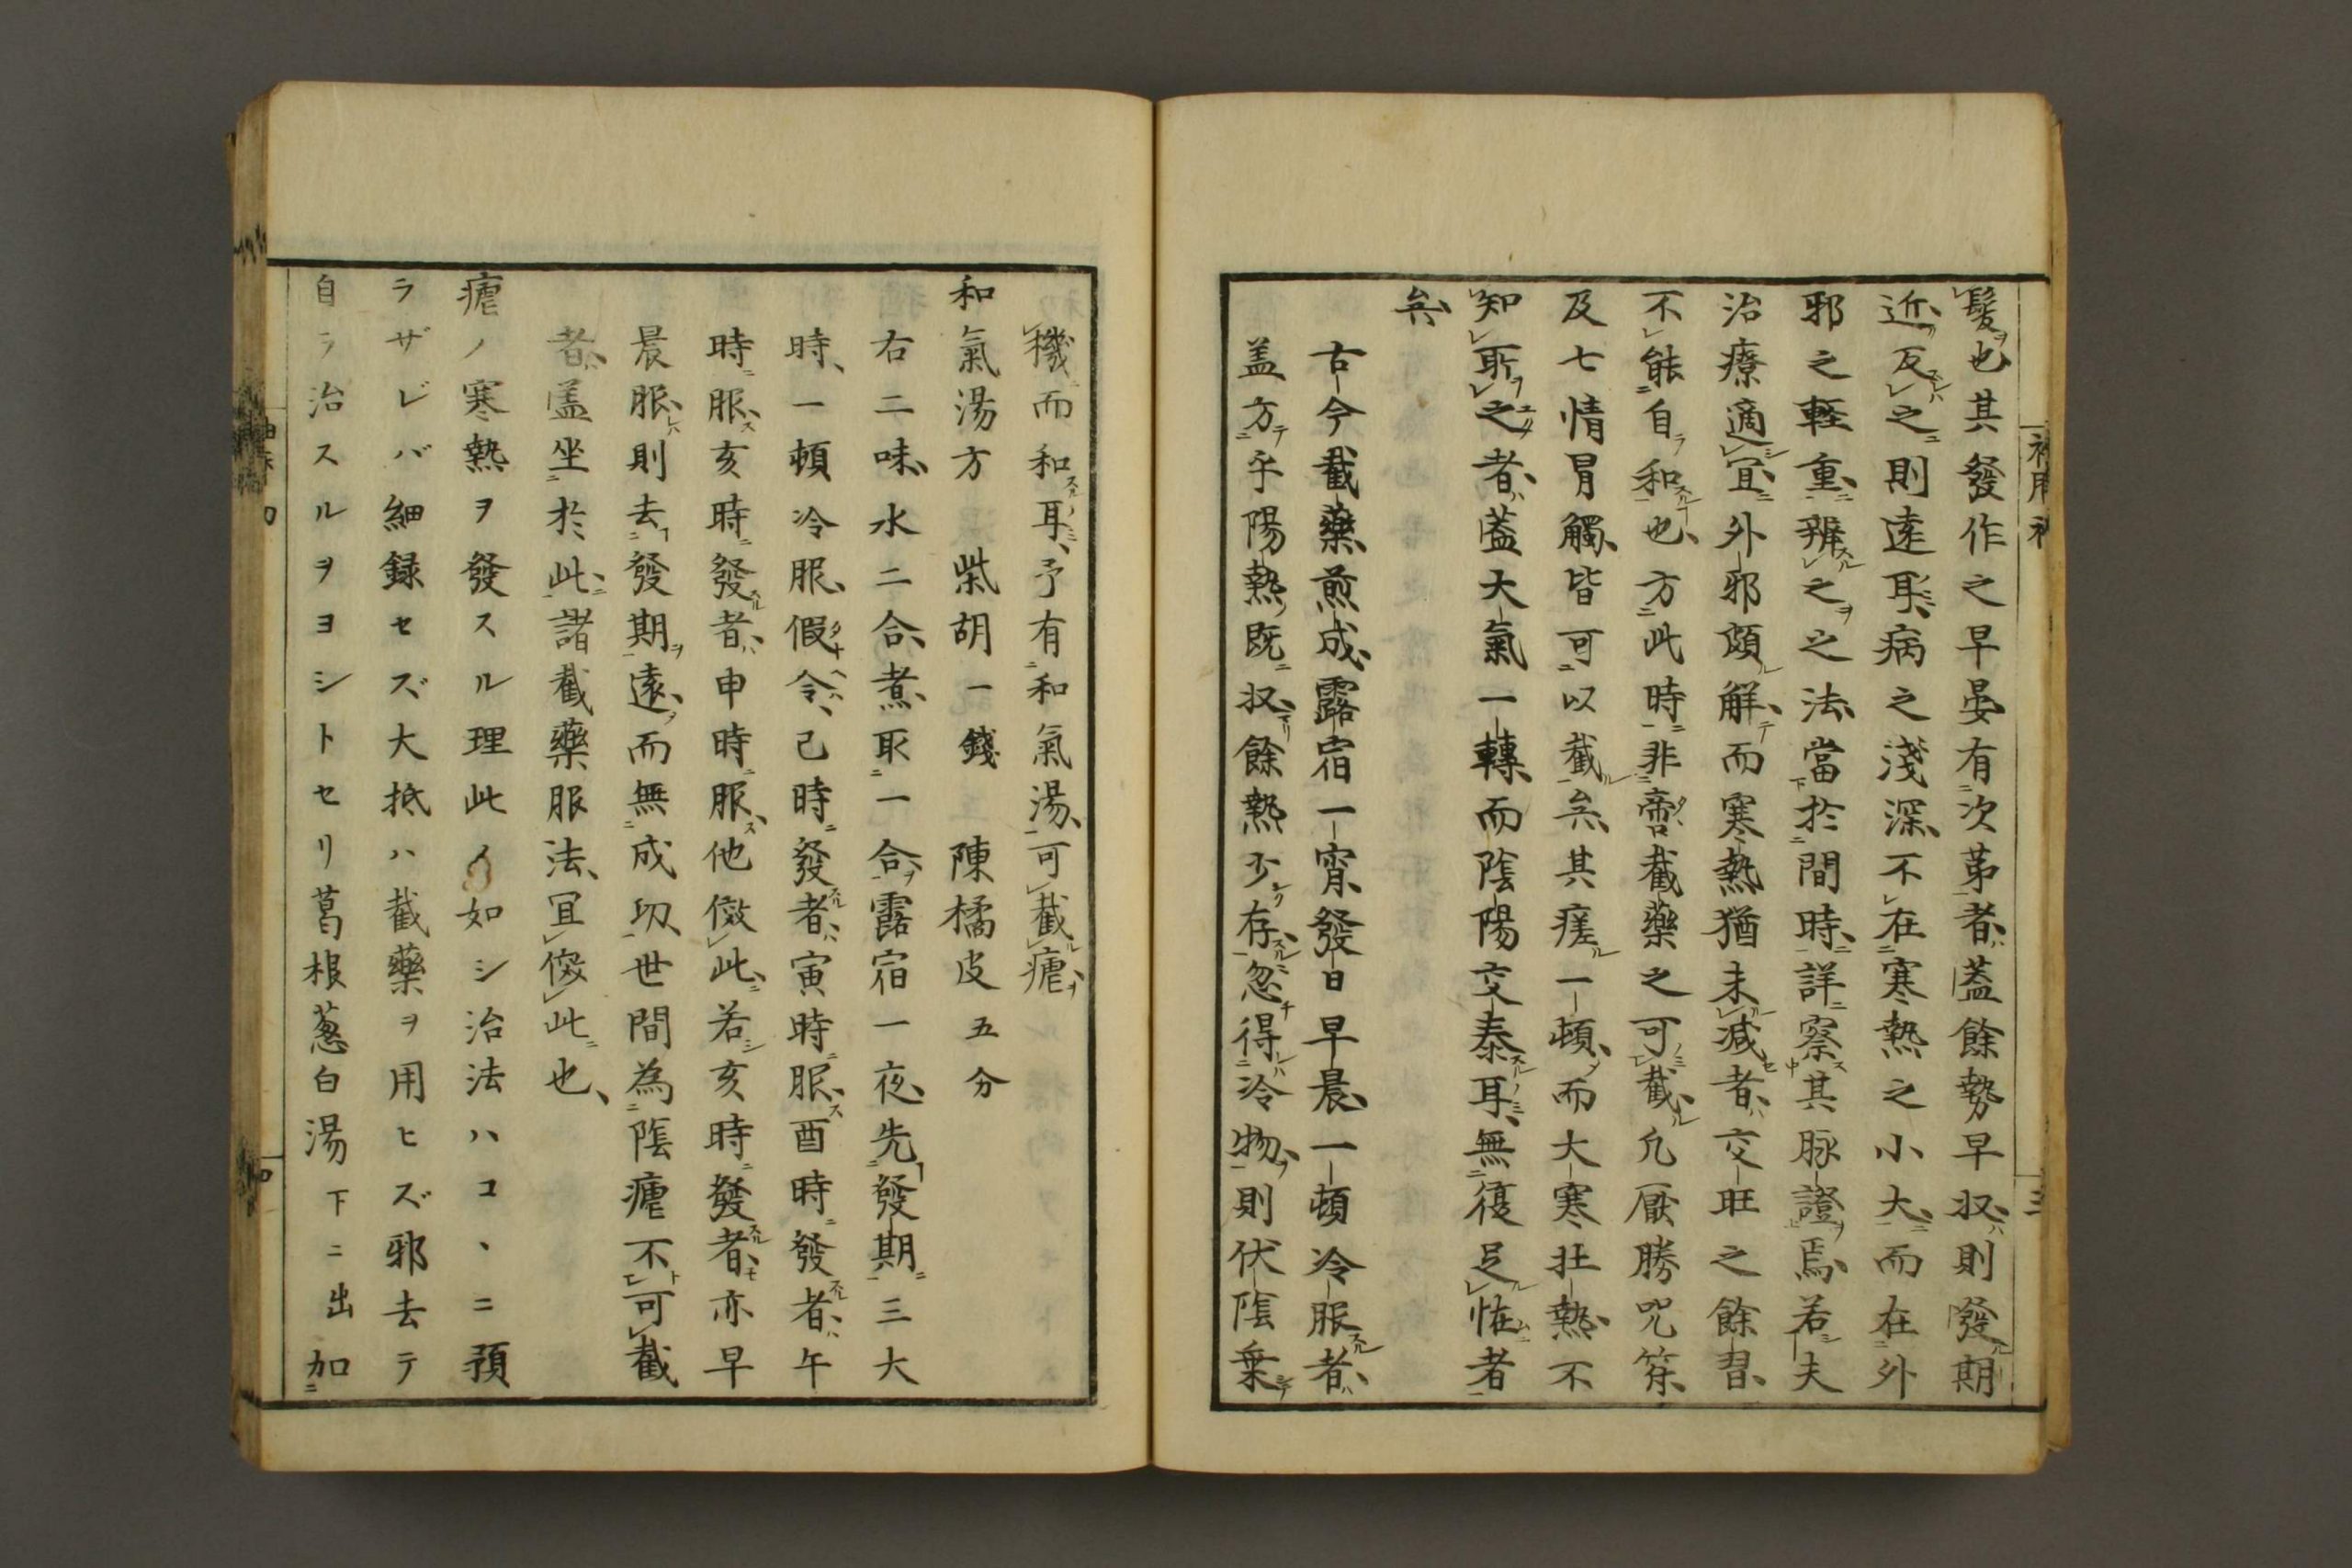 髮也其發作之早晏有次苐者蓋餘勢早收則發期
近反之則遠耳病之淺深不在寒熱之小大而在外
邪之軽重辨之之法當於間時詳察其脉證焉若夫
治療適宜外邪頗解而寒熱猶未減者交旺之餘習
不能自和也方此時非啻截藥之可截凢厭勝咒䇲
及七情冒觸皆可以截矣其瘥一頓而大寒壯熱不
知所之者蓋大氣一轉而陰陽交泰耳無復足怪者
矣
古今截藥煎成露宿一宵發日早晨一頓冷服者
盖方乎陽熱既收餘熱少存忽得冷物則伏陰乗
機而和耳予有和氣湯可截瘧
和氣湯方 柴胡一錢 陳橘皮五分
右二味水二合煮取一合露宿一夜先發期三大
時一頓冷服假令已時發者寅時服酉時發者午
時服亥時發者申時服他倣此若亥時發者亦早
晨服則去發期遠而無成功世間為陰瘧不可截
者盖坐於此諸截藥服法冝倣此也
瘧ノ寒熱ヲ發スル理此ノ如シ治法ハコヽニ預
ラザレバ細録セズ大抵ハ截藥ヲ用ヒズ邪去テ
自ラ治スルヲヨシトセリ葛根葱白湯下ニ出加